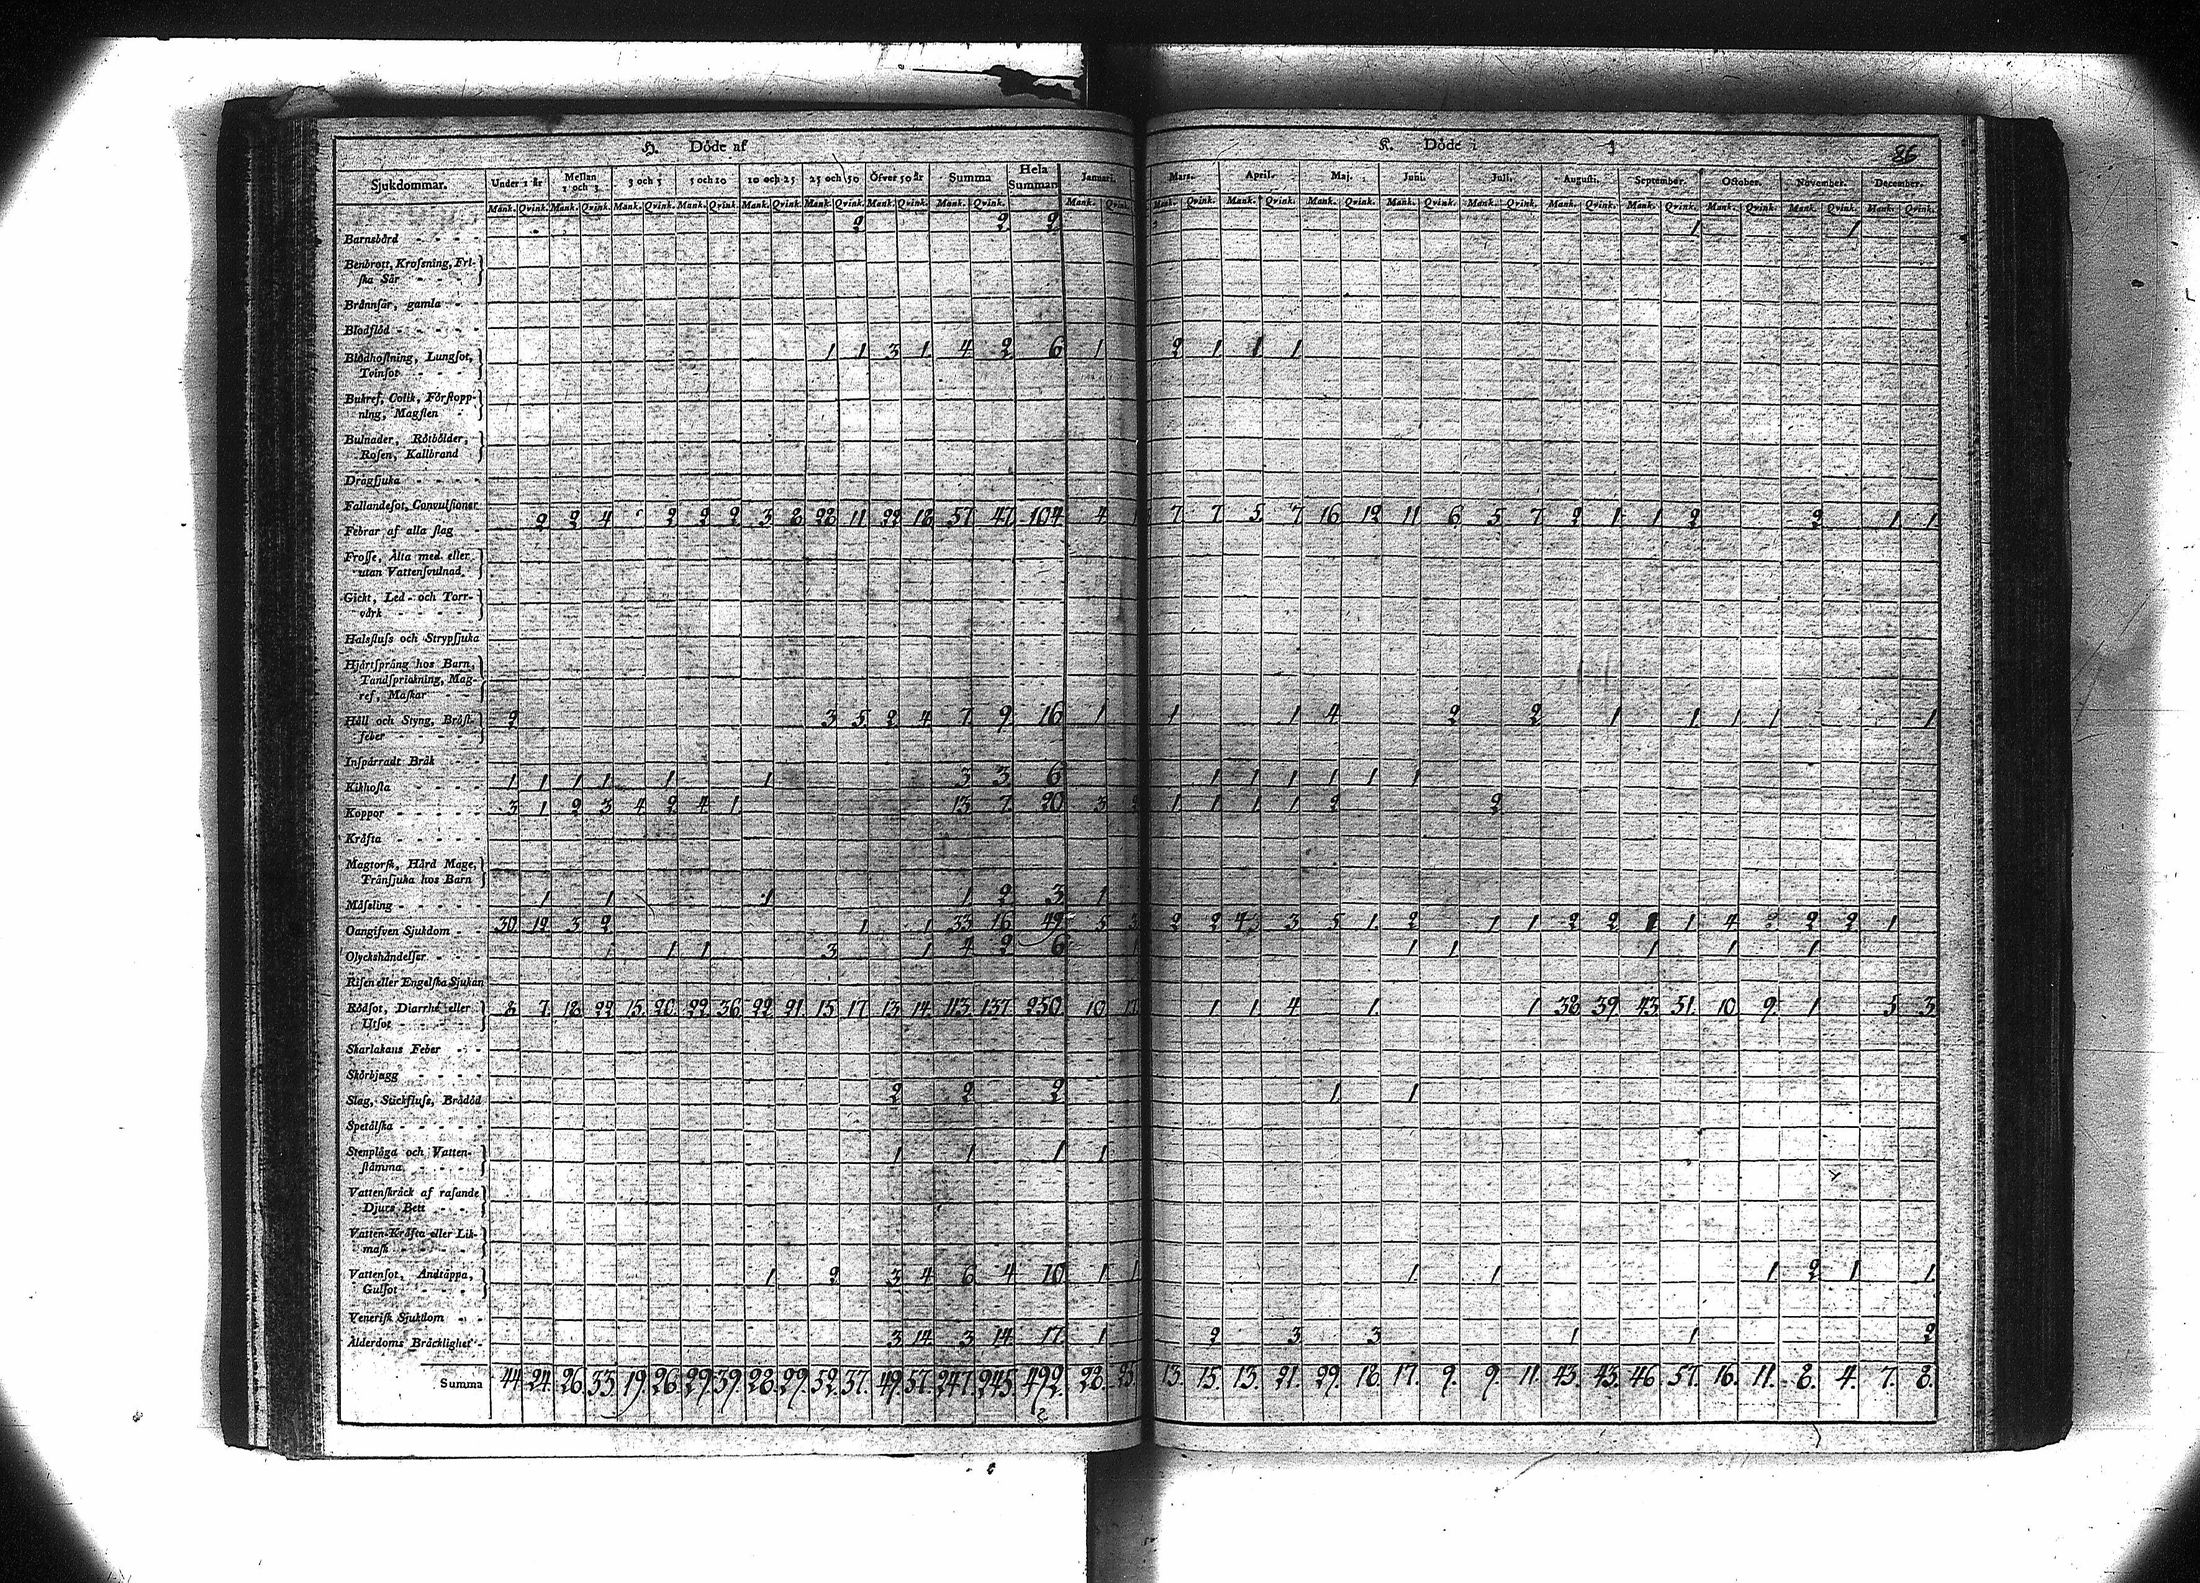 H. Döde af K. Döde i
86
Sjukdommar. Under 1 år Mellan 1 och 3. 3 och 5 5 och 10 10 och 25 25 och 50 Öfver 50 år Summa Hela Summan Januari. Mars. April. Maj. Juni. Juli. Augusti. September. October. November. December.
Mank. Qvink. Mank. Qvink. Mank. Qvink. Mank. Qvink. Mank. Qvink. Mank. Qvink. Mank. Qvink. Mank. Qvink. Mank. Qvink. Mank. Qvink. Mank. Qvink. Mank. Qvink. Mank. Qvink. Mank. Qvink. Mank. Qvink. Mank. Qvink. Mank. Qvink. Mank. Qvink. Mank. Qvink.
Barnsbörd 2 2 2 1 1
Benbrott, Krosning, Fri-
ska Sår
Brännsår, gamla
Blodflöd
Blodhostning, Lungsot, 1 1 3 1 4 2 6 1 2 1 1 1
Tvinsot
Bukref, Colik, Förstopp-
ning, Magsten
Bulnader, Rötbölder,
Rosen, Kallbrand
Drägsjuka
Fallandesot, Convulsioner
Febrar af alla slag 2 2 4 2 2 2 3 8 28 11 22 18 57 47 104 4 1 7 7 5 7 16 12 11 6 5 7 2 1 1 2 2 1 1
Frosse, Älta med eller
utan Vattensvulnad
Gickt, Led- och Torr-
värk
Halsfluss och Strypsjuka
Hjärtsprång hos Barn,
Tandsprickning, Mag-
ref, Maskar
Håll och Styng, Bröst- 2 3 5 2 4 7 9 16 1 1 1 4 2 2 1 1 1 1 1
feber
Inspärradt Bråk
Kikhosta 1 1 1 1 1 1 3 3 6 1 1 1 1 1 1
Koppor 3 1 2 3 4 2 4 1 13 7 20 3 2 1 1 1 1 2 2
Kräfta
Magtorsk, Hård Mage,
Trånsjuka hos Barn
Mässling 1 1 1 1 2 3 1
Oangifven Sjukdom 30 12 3 2 1 1 33 16 49 5 3 2 2 3 5 1 2 1 1 2 2 1 4 2 2 1
Olyckshändelser 1 1 1 3 1 4 2 6 1 1 1 1 1 1
Risen eller Engelska Sjukan
Rödsot, Diarrhé eller 8 7 18 22 15 20 22 36 22 21 15 17 13 14 113 137 250 10 1 1 4 1 1 38 39 43 51 10 9 1 5 3
Utsot
Skarlakans Feber
Skörbjugg
Slag, Stickfluss, Brådöd 2 2 2 1 1
Spetälska
Stenplåga och Vatten- 1 1 1 1
stämma
Vattenskräck af rasande
Djurs Bett
Vatten-Kräfta eller Lik-
mask
Vattensot, Andtäppa, 1 2 3 4 6 4 10 1 1 1 1 1 2 1 1
Gulsot
Venerisk Sjukdom
Ålderdoms Bräcklighet 3 14 3 14 17 1 2 3 3 1 1 2
Summa 44. 24. 26. 33. 19. 26. 29. 39. 28. 29. 52. 37. 49. 57. 247. 245. 492. 28. 13. 15. 13. 21. 29. 18. 17. 9. 9. 11. 43. 43. 46. 57. 16. 11. 8. 4. 7. 8.